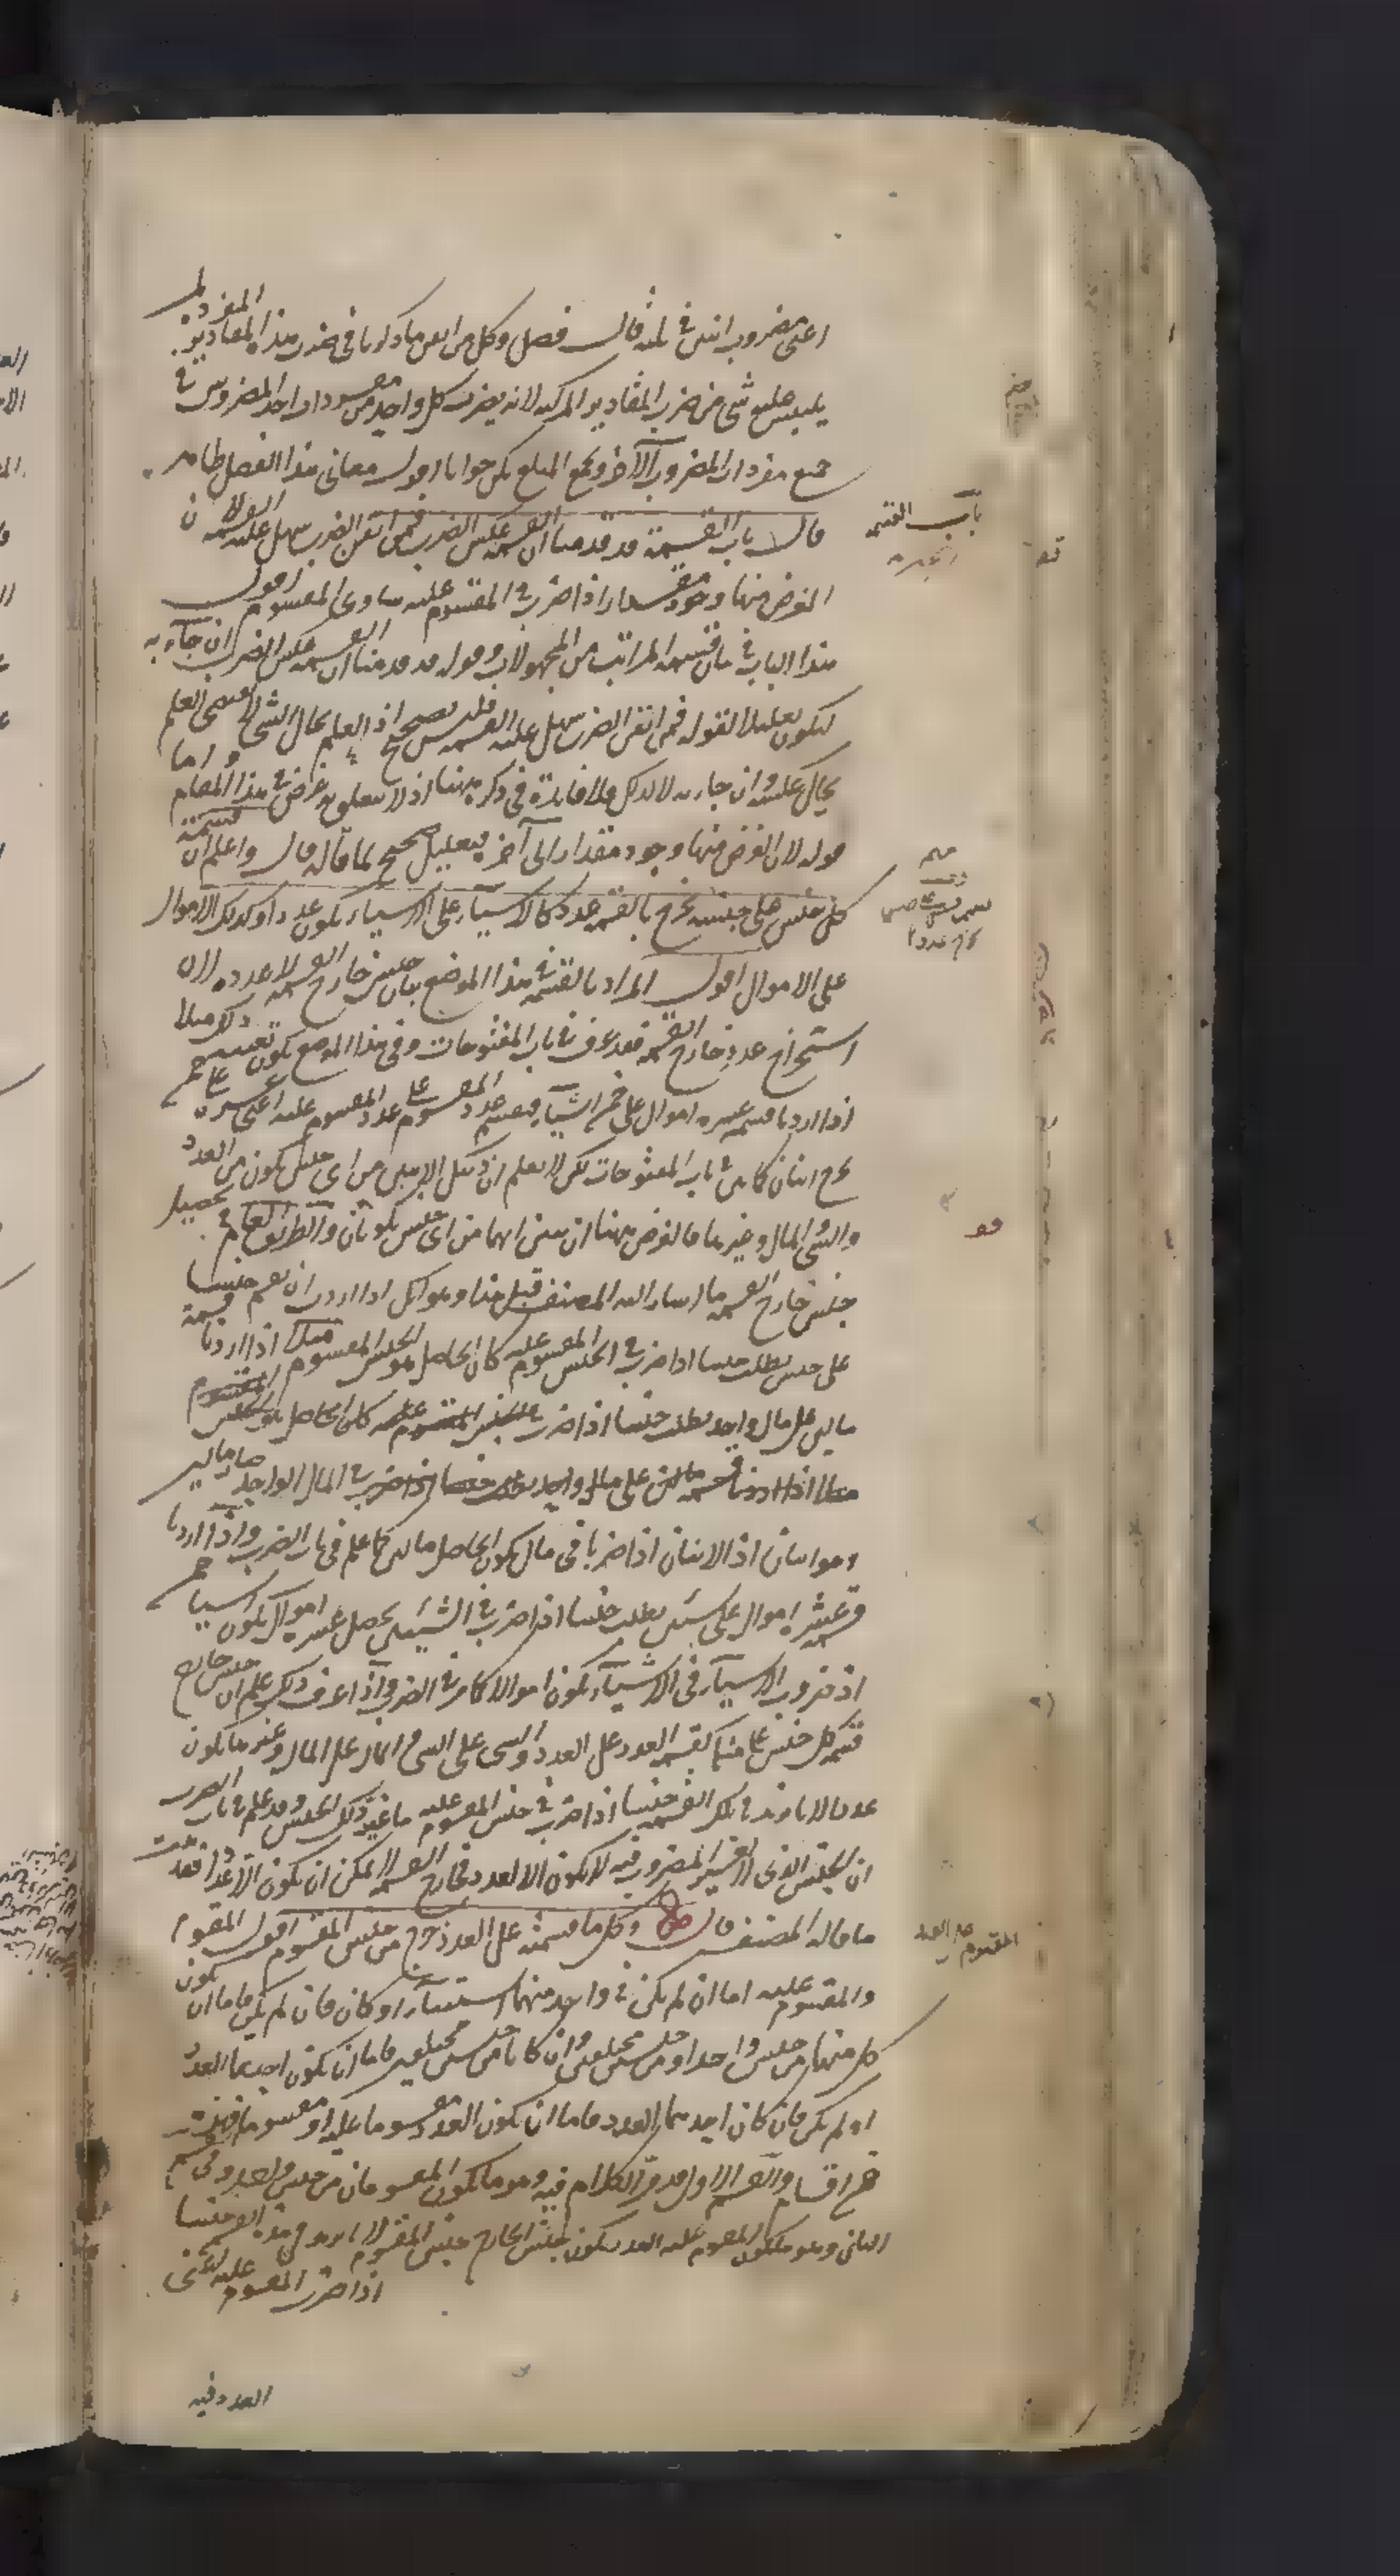 اعنى مضروب اثنين فى ثلثة قال فصل وكل من اتقن ما ذكرنا فى ضرب هذا المقادير المفردة لم
يلتبس عليه شئ من ضرب المقادير المركبة لانه يضرب كل واحد من مفردات احد المضروبين فى
جميع مفردات المضروب الآخر ويجمع المبلغ يكن جوابا اقول معانى هذا الفصل ظاهر
قال باب القسمة قد قدمنا ان القسمة عكس الضرب فمن اتقن الضرب سهل عليه القسمة لان
الغرض منها وجود مقدار اذا ضرب فى المقسوم عليه ساوى المقسوم اقول
هذا الباب فى بيان قسمة المراتب من المجهولات وقوله قد قدمنا ان القسمة عكس الضرب ان جاء به
ليكون تعليلا لقوله فمن اتقن الضرب سهل عليه القسمة فليس بصحيح اذ العلم بحال الشئ لا يقتضى العلم
بحال عكسه وان جاء به لا لذلك فلا فائدة فى ذكره ههنا اذ لا يتعلق به غرض فى هذا المقام واما
قوله لان الغرض منها وجود مقدار الى آخره فتعليل صحيح لما قاله قال واعلم ان قسمة
كل جنس على جنسه يخرج بالقسمة عدد كالاشياء على الاشياء يكون عددا وكذلك الاموال
على الاموال اقول المراد بالقسمة فى هذا الموضع بيان جنس خارج القسمة لا عدده لان
استخراج عدد خارج القسمة فقد عرف فى باب المفتوحات وفى هذا الموضع يكون ذلك مثلا
اذا اردنا قسمة عشرة اموال على خمسة اشياء فيقسم عدد المقسوم على عدد المقسوم عليه اعنى عشرة على
يخرج اثنان كما مر فى باب المفتوحات لكن لا يعلم ان ذينك الاثنين من اى جنس يكون من العدد
والشئ والمال وغيرها فالغرض ههنا ان يبين انهما من اى جنس يكونان والطريق العام فى تحصيل
جنس خارج القسمة ما اشار اليه المصنف قبل هذا وهو انك اذا اردت ان تقسم جنسا
على جنس تطلب جنسا اذا ضرب فى الجنس المقسوم عليه كان الحاصل هو الجنس المقسوم مثلا اذا اردنا قسمة
مالين على مال واحد تطلب جنسا اذا ضرب
ضرب فى المال الواحد صار مالين
وهو اثنان اذ الاثنان اذا ضربا فى مال يكون الحاصل مالين كما علم فى باب الضرب واذا اردنا
قسمة عشرة اموال على شيئين تطلب جنسا اذا ضرب فى الشيئين يحصل عشرة اموال يكون خمسة اشياء
اذ ضرب الاشياء فى الاشياء يكون اموالا كما مر فى الضرب واذا عرف ذلك علم ان جنس خارج
قسمة كل جنس على مثله كقسمة العدد على العدد والشئ على الشئ والمال على المال وغيرها يكون
عددا لانا نريد فى تلك القسمة جنسا اذا ضرب فى جنس المقسوم عليه ما غير ذلك الجنس وقد علم فى باب الضرب
ان الجنس الذى لا يغير المضروب فيه لا يكون الا العدد فخارج القسمة لا يمكن ان يكون الا عددا فقد ثبت
ما قاله المصنف قال وكل ما قسمته على العدد خرج من جنس المقسوم اقول المقسوم
والمقسوم عليه اما ان لم يكن فى واحد منهما استثناء او كان فان لم يكن فاما ان يكون
كل منهما من جنس واحد او من جنسين مختلفين وان كانا من جنسين مختلفين فاما ان يكون احدهما العدد
او لم يكن فان كان احدهما العدد فاما ان يكون العدد مقسوما عليه او مقسوما فهذه
خمسة اقسام والقسم الاول قد مر الكلام فيه وهو ما يكون المقسومان من جنس واحد وفى القسم
الثانى وهو ما يكون المقسوم عليه العدد يكون جنس الخارج جنس المقسوم لانا نريد فى هذه القسمة جنسا
اذا ضرب المقسوم عليه اعنى
العدد فيه
باب القسمة
المقسوم على العدد